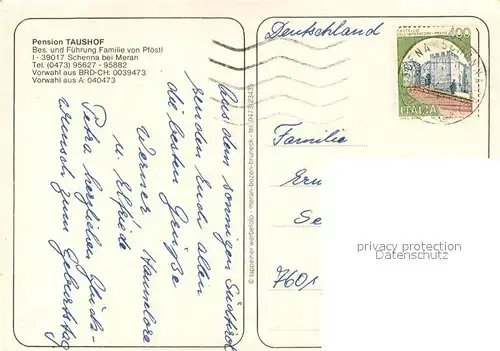 Pension TAUSHOF
Bes. und Führung Familie von Pföstl
I - 39017 Schenna bei Meran
Tel. (0473) 95627 - 95882
Vorwahl aus BRD-CH: 0039473
Vorwahl aus A: 040473
Aus dem sonnigen Südtirol
senden Euch allen
die besten Grüße
Werner, Hannelore
u. Elfriede
Petra herzlichen Glück-
wunsch zum Geburtstag
© tappeiner werbefoto - meran-bozen-bruneck - tel. 0473/23435
Deutschland
CASTELLO
DELL'IMPERATORE - PRATO
400
ITALIA
SCHENNA
Familie
Ern
Se
7601
privacy protection
Datenschutz